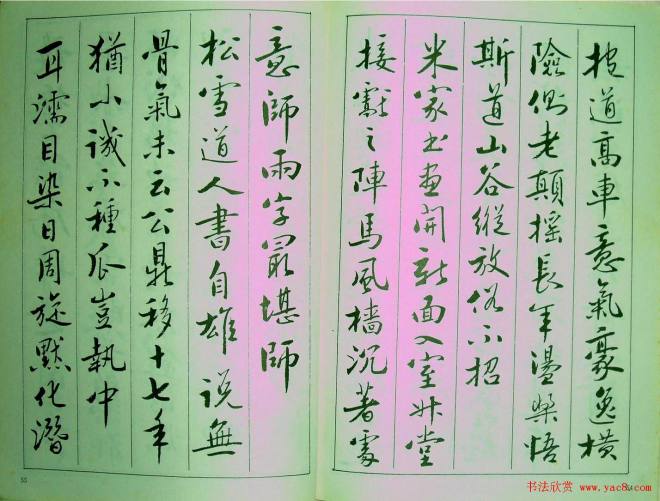 披道高車意氣豪逸橫
險側老顛搖長年盪槳悟
斯道山谷縱放俗不招
米家書畫開新面入室升堂
接獻之陣馬風檣沉著處
意師兩字最堪師
松雪道人書自雄說無
骨氣未云公鼎移十七年
猶小識不種瓜豈執中
耳濡目染日周旋默化潛
55
书法欣赏 www.yac8.com